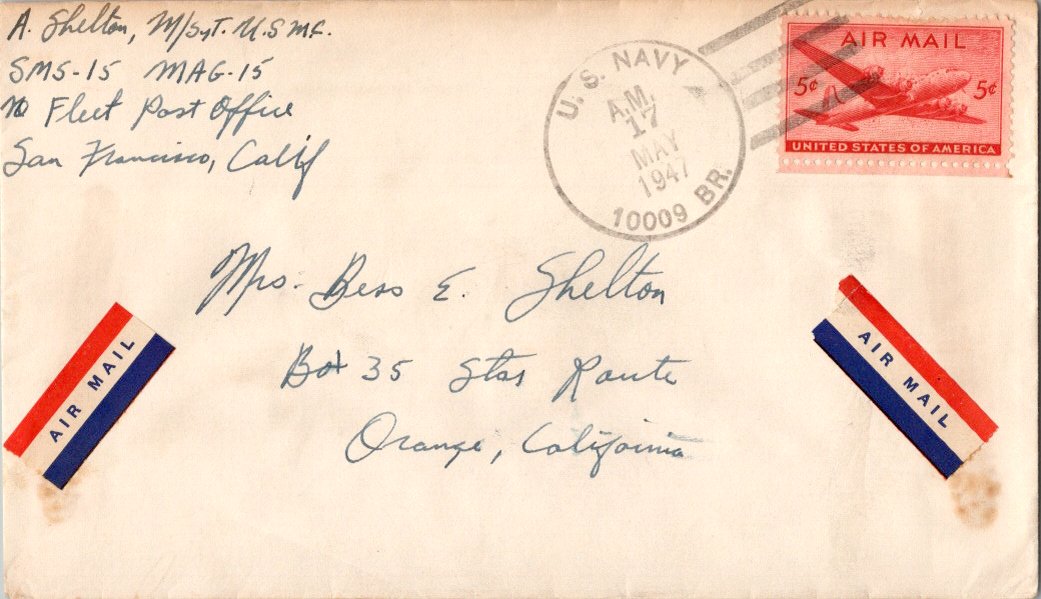 A. Shelton, M/Sgt. U.S.M.C.
SMS-15 MAG-15
% Fleet Post Office
San Francisco, Calif
U. S. NAVY
A.M.
17
MAY
1947
10009 BR.
AIR MAIL
5¢ 5¢
UNITED STATES OF AMERICA
Mrs. Bess E. Shelton
Box 35 Star Route
Orange, California
AIR MAIL
AIR MAIL